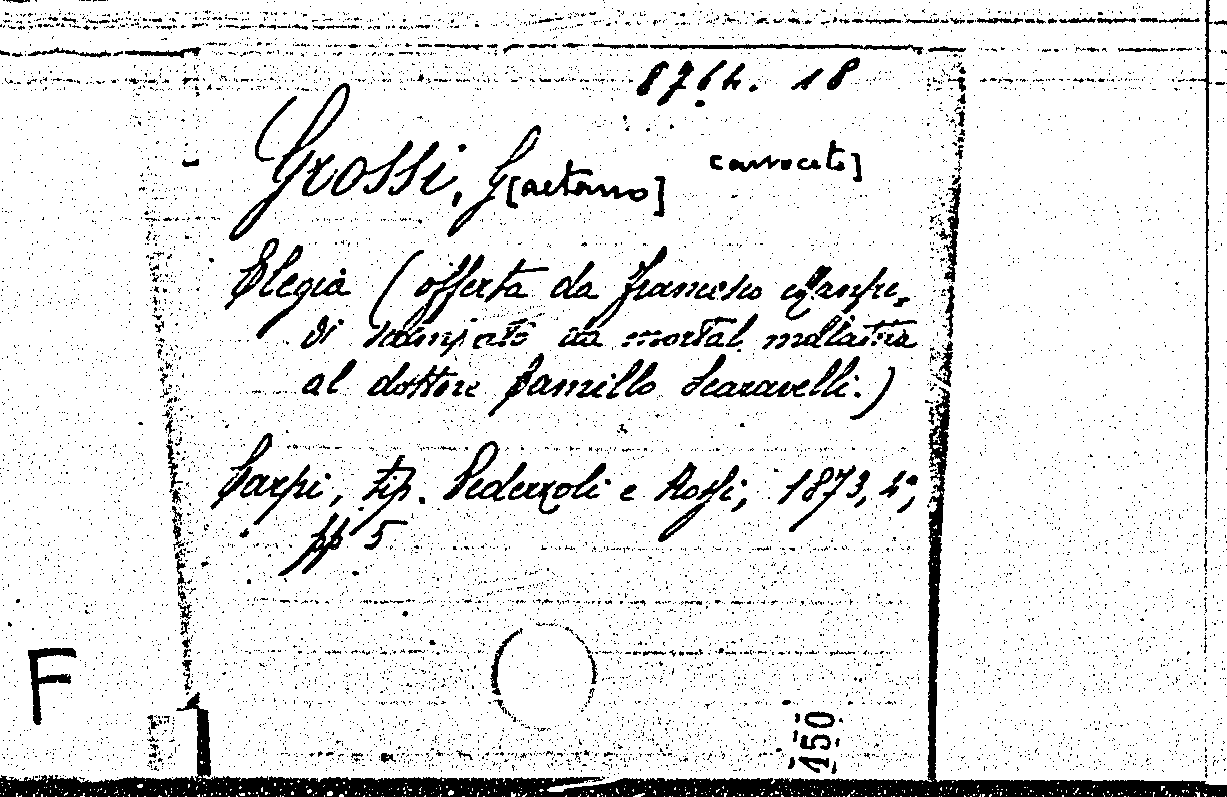 8764. 18
Grossi, G[aetano] [avvocato]
Elegia (offerta da Francesco Manfre-
di scampato da mortal mallattia
al dottore Camillo Scaravelli.)
Carpi, tip. Pederzoli e Rossi, 1873, 4°,
pp 5
F
150